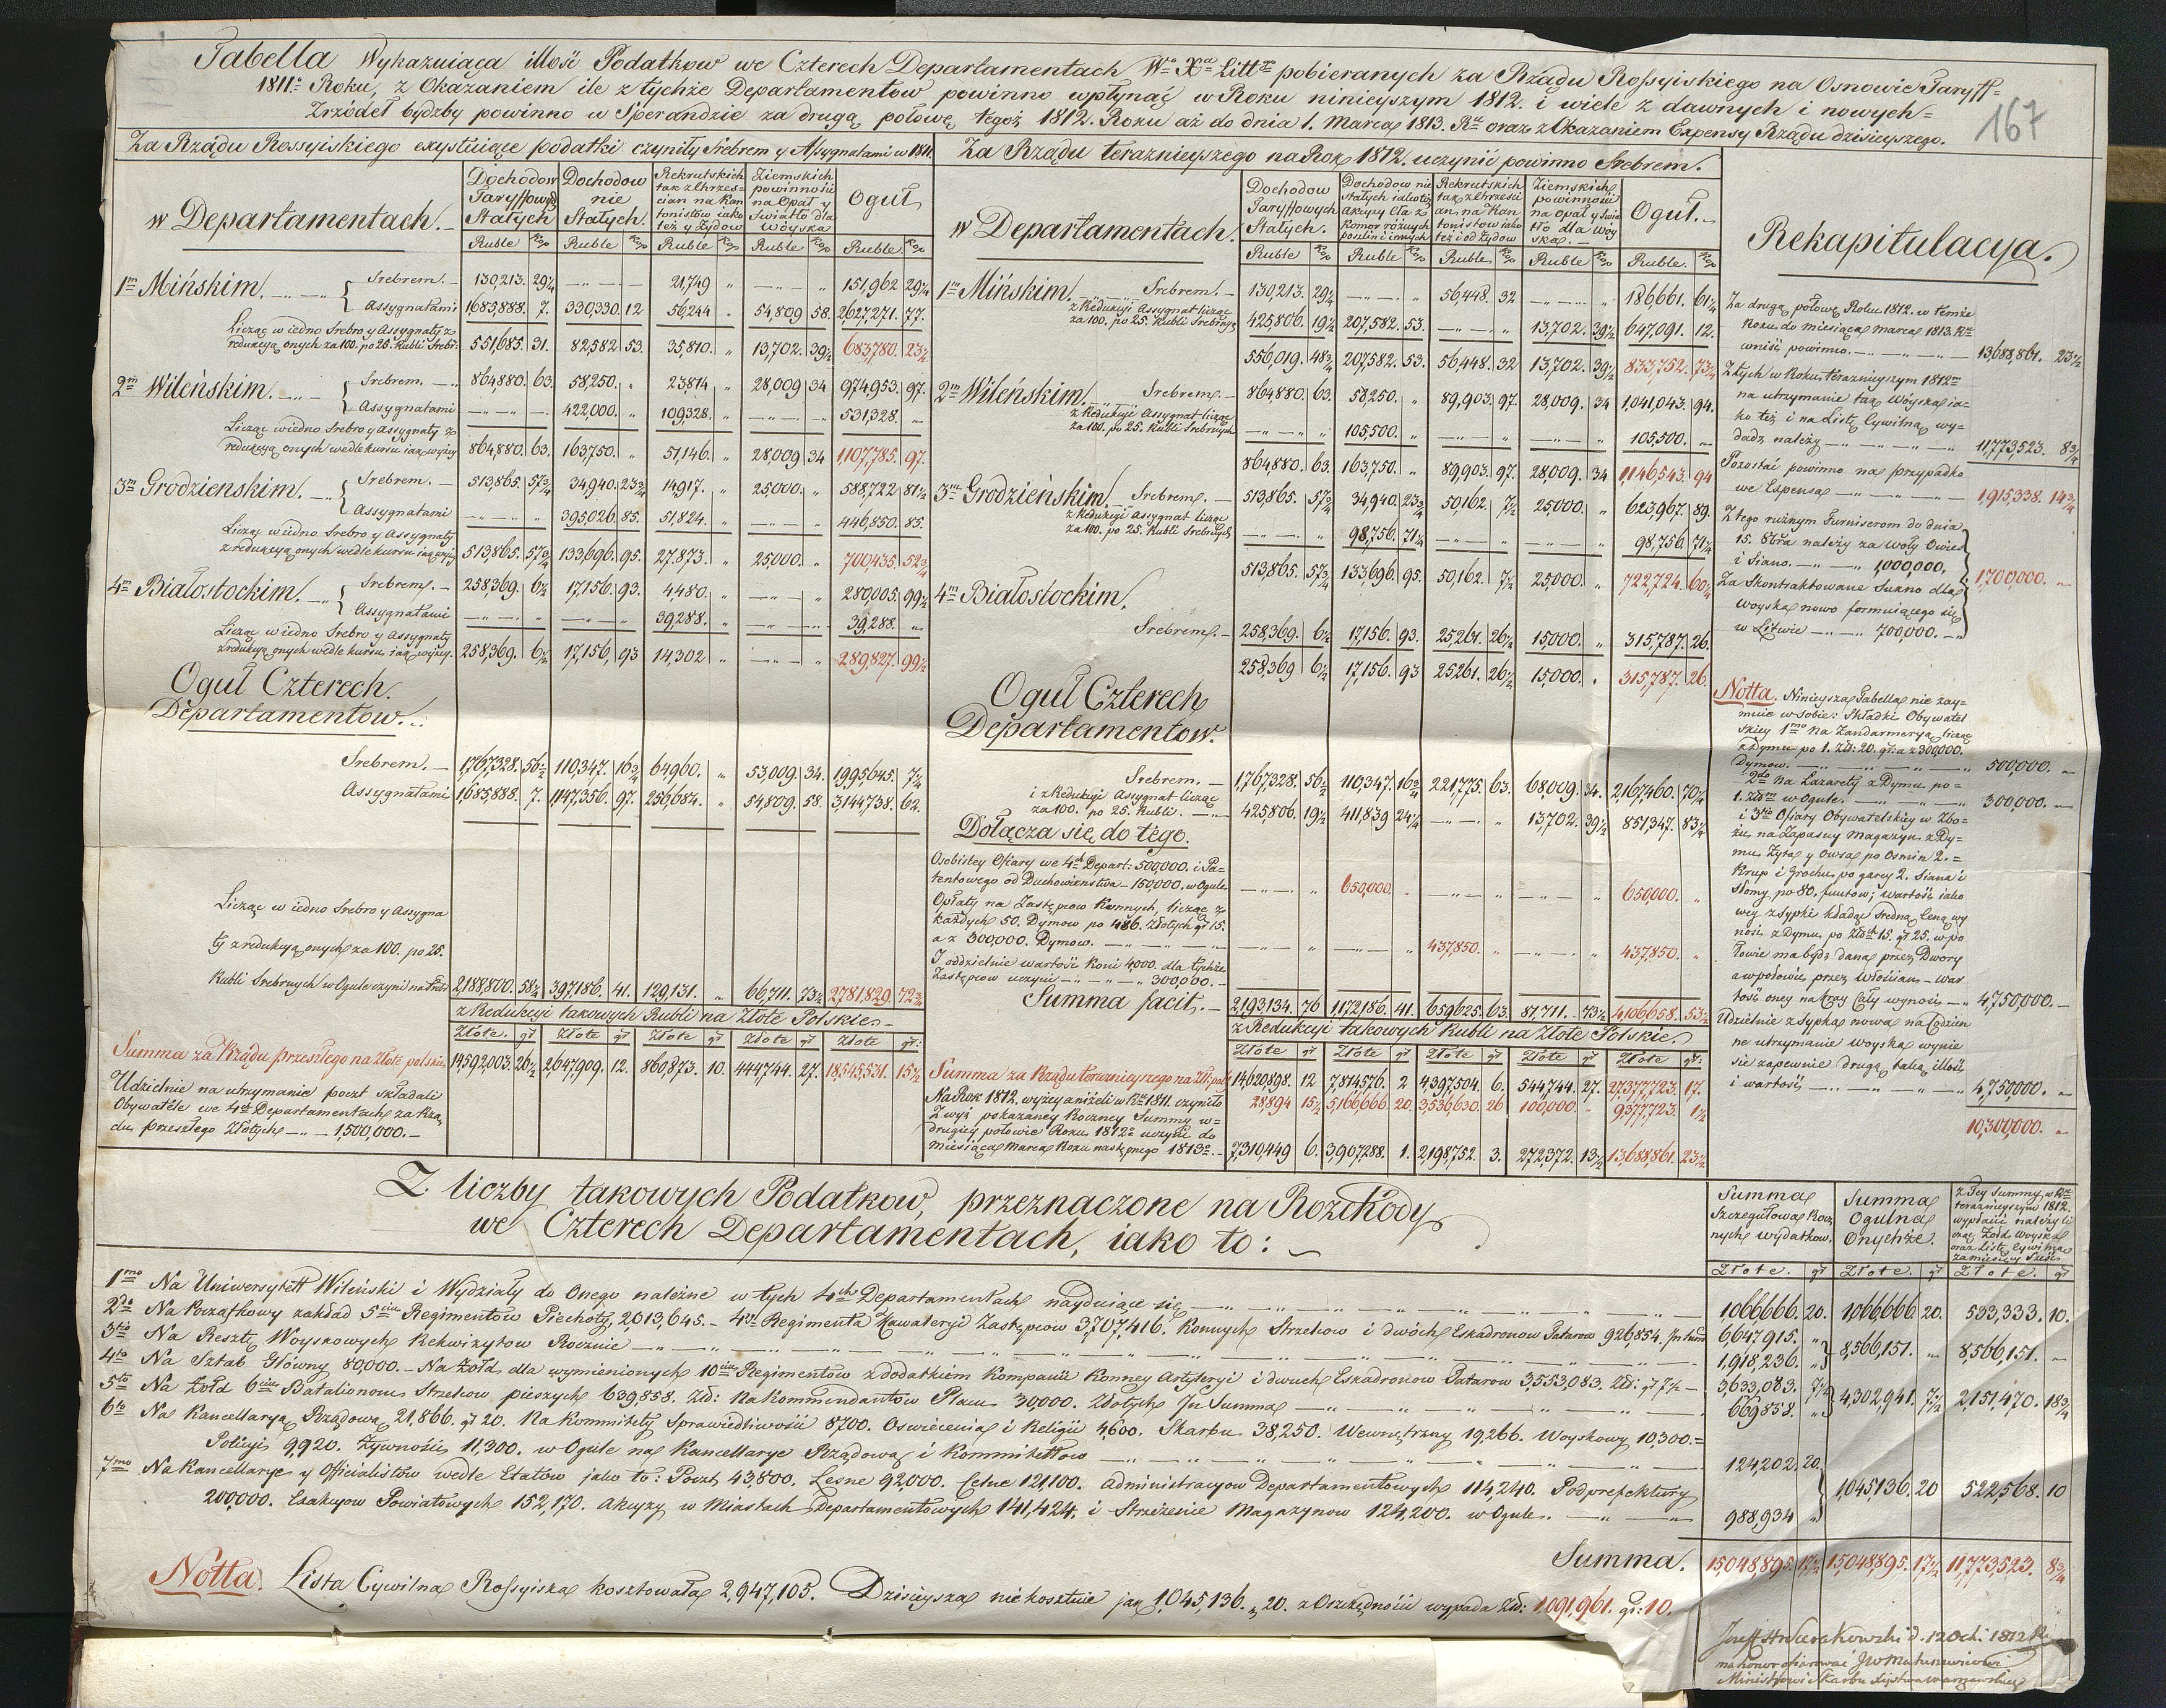 Tabella Wykazuiąca illość Podatkow we Czterech Departamentach Wo Xa Littgo pobieranych za Rządu Rossyiskiego na Osnowie Taryff=
1811o Roku, z Okazaniem ile z tychże Departamentow powinno wpłynąć w Roku ninieyszym 1812. i wiele z dawnych i nowych=
Zrzódeł bydzby powinno w Sperandzie za drugą połowę tegoż 1812. Roku aż do dnia 1. Marca 1813. Ru oraz z Okazaniem Expensy Rządu dzisieyszego.
167
Za Rządu Rossyiskiego exystuiące podatki czyniły Srebrem y Assygnatami w 1811.
w Departamentach.
Dochodow Taryffowych Stałych
Dochodow nie Stałych.
Rekrutskich tak z Chrześcian na Kantonistów iako też y Żydow
Ziemskich powinności na Opał y Swiatło dla Woyska
Oguł
Ruble Kop Ruble Kop Ruble Kop Ruble Kop Ruble. Kop
1m Mińskim. Srebrem. 130,213. 29¼ 21,749 151,962 29¼
Assygnatami 1,685,888. 7. 330,330. 12 56,244 54,809 58. 2,627,271. 77.
Licząc w iedno Srebro y Assygnaty z
redukcyą onych za 100. po 25. Rubli Srebr: 551,685. 31. 82,582 53. 35,810. 13,702. 39½ 683,780. 23½
2m Wileńskim. Srebrem. 864,880. 63. 58,250. 23,814 28,009 34 974,953. 97.
Assygnatami 422,000. 109,328. 531,328.
Licząc w iedno Srebro y Assygnaty z
redukcyą onych wedle kursu iak wyżey 864,880. 63. 163,750. 51,146. 28,009 34 1,107,785. 97.
3m Grodzienskim. Srebrem. 513,865. 57¾ 34,940. 23¾ 14,917. 25,000. 588,722 81½
Assygnatami 395,026. 85. 51,824. 446,850. 85.
Licząc w iedno Srebro y Assygnaty
z redukcyą onych wedle kursu iak wyżey 513,865. 57¾ 133,696. 95. 27,873. 25,000. 700,435. 52¾
4m Białostockim. Srebrem. 258,369. 6½ 17,156. 93. 4,480. 280,005. 99½
Assygnatami 39,288. 39,288.
Licząc w iedno Srebro y Assygnaty
z redukcyą onych wedle kursu iak wyżey. 258,369. 6½ 17,156, 93 14,302 289,827. 99½
Oguł Czterech
Departamentow.
Srebrem. 1,767,328. 56½ 110,347. 16¾ 64,960. 53,009. 34. 1,995,645. 7¼
Assygnatami 1,685,888. 7. 1,147,356. 97. 256,684. 54,809. 58. 3,144,738. 62.
Licząc w iedno Srebro y Assygna
ty z redukcyą onych za 100. po 25.
Rubli Srebrnych w Ogule czyni na Srebro 2,188,800. 58¼ 397,186. 41. 129,131. 66,711. 73½ 2,781,829. 72¾
z Redukcyi takowych Rubli na Złote Polskie
Złote. gr Złote gr Złote gr Złote gr Złote gr:
Summa za Rządu przeszłego na Złote polskie 14,592,003. 26½ 2,647,909. 12. 860,873. 10. 444,744. 27. 18,545,531. 15½
Udzielnie na utrzymanie poczt składali
Obywatele we 4ch Departamentach za Rzą
du przeszłego Złotych 1,500,000.
Za Rządu teraznieyszego na Rok 1812. uczynić powinno Srebrem.
w Departamentach.
Dochodow Taryffowych Stałych.
Dochodow nie Stałych iakoto: Akcyzy Cła z Komor różnych poszlin i innych
Rekrutskich tak z Chrześcian na Kantonistow iako też i od Żydow
Ziemskich powinności na Opał y Swiatło dla Woyska.
Oguł.
Ruble Kop Ruble. Kop Ruble. Kop Ruble Kop Ruble. Kop
1m Mińskim. Srebrem. 130,213. 29¼ 56,448. 32 186,661. 61¼
z Redukcyi Assygnat licząc
za 100. po 25. Rubli Srebrnych 425,806. 19½ 207,582. 53. 13,702. 39½ 647,091. 12.
556,019. 48¾ 207,582. 53. 56,448. 32 13,702. 39½ 833,752. 73¼
2m Wileńskim. Srebrem. 864,880. 63. 58,250. 89,903. 97. 28,009. 34 1,041,043. 94.
z Redukcyi Assygnat licząc
za 100. po 25. Rubli Srebrnych 105,500. 105,500.
864,880. 63. 163,750. 89,903. 97. 28,009. 34 1,146,543. 94
3m Grodzieńskim. Srebrem. 513,865. 57¾ 34,940. 23¾ 50,162. 7½ 25,000. 623,967. 89.
z Redukcyi Assygnat licząc
za 100. po 25. Rubli Srebrnych 98,756. 71¼ 98,756. 71¼
513,865. 57¾ 133,696. 95. 50,162. 7½ 25,000. 722,724. 60¼
4m Białostockim.
Srebrem. 258,369. 6½ 17,156. 93. 25,261. 26½ 15,000. 315,787. 26.
258,369 6½ 17,156. 93 25,261. 26½ 15,000. 315,787. 26.
Oguł Czterech
Departamentow.
Srebrem. 1,767,328. 56½ 110,347. 16¾ 221,775. 63. 68,009. 34. 2,167,460. 70¼
i z Redukcyi Assygnat licząc
za 100. po 25. Rubli. 425,806. 19½ 411,839 24¼ 13,702. 39½ 851,347. 83¼
Dołącza się do tego.
Osobistey Ofiary we 4ch Depart: 500,000. i Pa-
tentowego od Duchowieństwa 150,000. w Ogule 650,000. 650,000.
Opłaty na Zastępcow Konnych, licząc z
każdych 50. Dymow po 486. Złotych gr 15.
a z 300,000. Dymow. 437,850. 437,850.
I oddzielnie wartość Koni 4,000. dla tychże
Zastępcow uczyni 300,000.
Summa facit. 2,193,134. 76 1,172,186. 41. 659,625. 63. 81,711. 73½ 4,106,658. 53½
z Redukcyi takowych Rubli na Złote Polskie.
Złote gr Złote gr Złote gr Złote gr Złote gr.
Summa za Rządu teraznieyszego na Zł: pol: 14,620,898. 12 7,814,576. 2 4,397,504. 6. 544,744. 27. 27,377,723. 17.
Na Rok 1812. wyżey aniżeli w Ru 1811. czyniło 28,894 15½ 5,166,666. 20. 3,536,630. 26 100,000. 9,377,723. 1½
Z wyż pokazaney Roczney Summy w
drugiey połowie Roku 1812o uczyni do
miesiąca Marca Roku następnego 1813o. 7,310,449 6. 3,907,288. 1. 2,198,752. 3. 272,372. 13½ 13,688,861. 23½
Rekapitulacya.
Za drugą połowę Roku 1812. w temże
Roku do miesiąca marca 1813. Ru
wniść powinno. 13,688,861. 23½
Z tych w Roku teraznieyszym 1812m
na utrzymanie tak Woyska ia-
ko też i na Listę Cywilną wy-
dadz należy 11,773,523. 8¾
Pozostać powinno na przypadko
we Expensa 1,915,338. 14¾
Z tego rużnym Furniserom do dnia
15. 8bra należy za woły Owies
i Siano. 1,000,000.
1,700,000.
Za Skontraktowane Sukno dla
woyska nowo formuiącego się
w Litwie 700,000.
Notta. Ninieysza Tabella nie zay-
muie w sobie: Składki Obywatel
skiey 1mo na Żandarmeryą, licząc
z Dymu po 1. Zł: 20. gr: a z 300,000.
Dymow. 500,000.
2do na Lazarety z Dymu po
1. Złm w Ogule. 300,000.
i 3tio Ofiary Obywatelskiey w Zbo-
żu, na Zapasny Magazyn z Dy-
mu Żyta y Owsa po Osmin 2.=
Krup i Grochu po garcy 2. Siana i
Słomy po 80. funtow; wartość iako
wey zsypki kładąc srednią Cenę wy
nosi z Dymu po Złch 15. gr 25. w po
łowie ma bydź dana przez Dwory
a w połowie przez Włoscian war
tość oney na Kray Cały wynosi 4,750,000.
Udzielnie zsypka nowa na Codzien
ne utrzymanie woyska wynie
sie zapewnie drugą taką illość
i wartość 4,750,000.
10,300,000.
Z liczby takowych Podatkow, przeznaczone na Rozchody
we Czterech Departamentach, iako to:
Summa Szczegułowa Rocznych wydatkow.
Summa Ogulna Onychże.
z Tey Summy w Ru teraznieyszym 1812. wypłacić należy li oraz Żołd Woyska oraz Listę Cywilną za miesięcy Sześć
Złote. gr Złote. gr Złote. gr
1mo Na Uniwersytett Wileński i Wydziały do Onego należne w tych 4ch Departamentach nayduiące się 1,066,666. 20. 1,066,666. 20. 533,333. 10.
2do Na Początkowy zakład 5ciu Regimentow Piechoty, 2,013,645. 4ch Regimenta Kawaleryi Zastępcow 3,707,416. Konnych Strzelcow i dwóch Eskadronow Tatarow 926,854. 6,647,915.
3tio Na Resztę Woyskowych Rekwizytow Rocznie 1,918,236. 8,566,151. 8,566,151.
4to Na Sztab Główny 80,000. Na Żołd dla wymienionych 10ciu Regimentow z dodatkiem Kompanii Konney Artyleryi i dwuch Eskadronow Tatarow 3,553,083. Zł: gr 7½ 3,633,083. 7½
5to Na Żołd 6ciu Batalionow Strzelcow pieszych 639,858. Zł: Na Kommendantow Placu 30,000. Złotych In Summa 669,858. 4,302,941. 7½ 2,151,470. 18¾
6to Na Kancellaryą Rządową 21,866. gr 20. Na Kommitety Sprawiedliwości 8700. Oswiecenia i Religii 4,600. Skarbu 38,250. Wewnętrzny 19,266. Woyskowy 10,300.=
Policyi 9,920. Żywności 11,300. w Ogule na Kancellarye Rządową i Kommitettow 124,202. 20.
7mo Na Kancellarye y Officialistow wedle Etatow jako to: Poczt 43,800. Lesne 92,000. Celne 121,100. Administracyow Departamentowych 114,240. Podprefektury
200,000. Exakcyow Powiatowych 152,170. Akcyzy w Miastach Departamentowych 141,424. i Strzeżenie Magazynow 124,200. w Ogule. 988,934 1,045,136. 20 522,568. 10
Summa. 15,048,895. 17½ 15,048,895. 17½ 11,773,523. 8¾
Notta. Lista Cywilna Rossyiska kosztowała 2,947,105. Dzisieysza nie kosztuie jak 1,045,136. 20. z Oszczędności wypada Zł: 1,091,961. gr: 10.
d. 12 Oct. 1812 R.